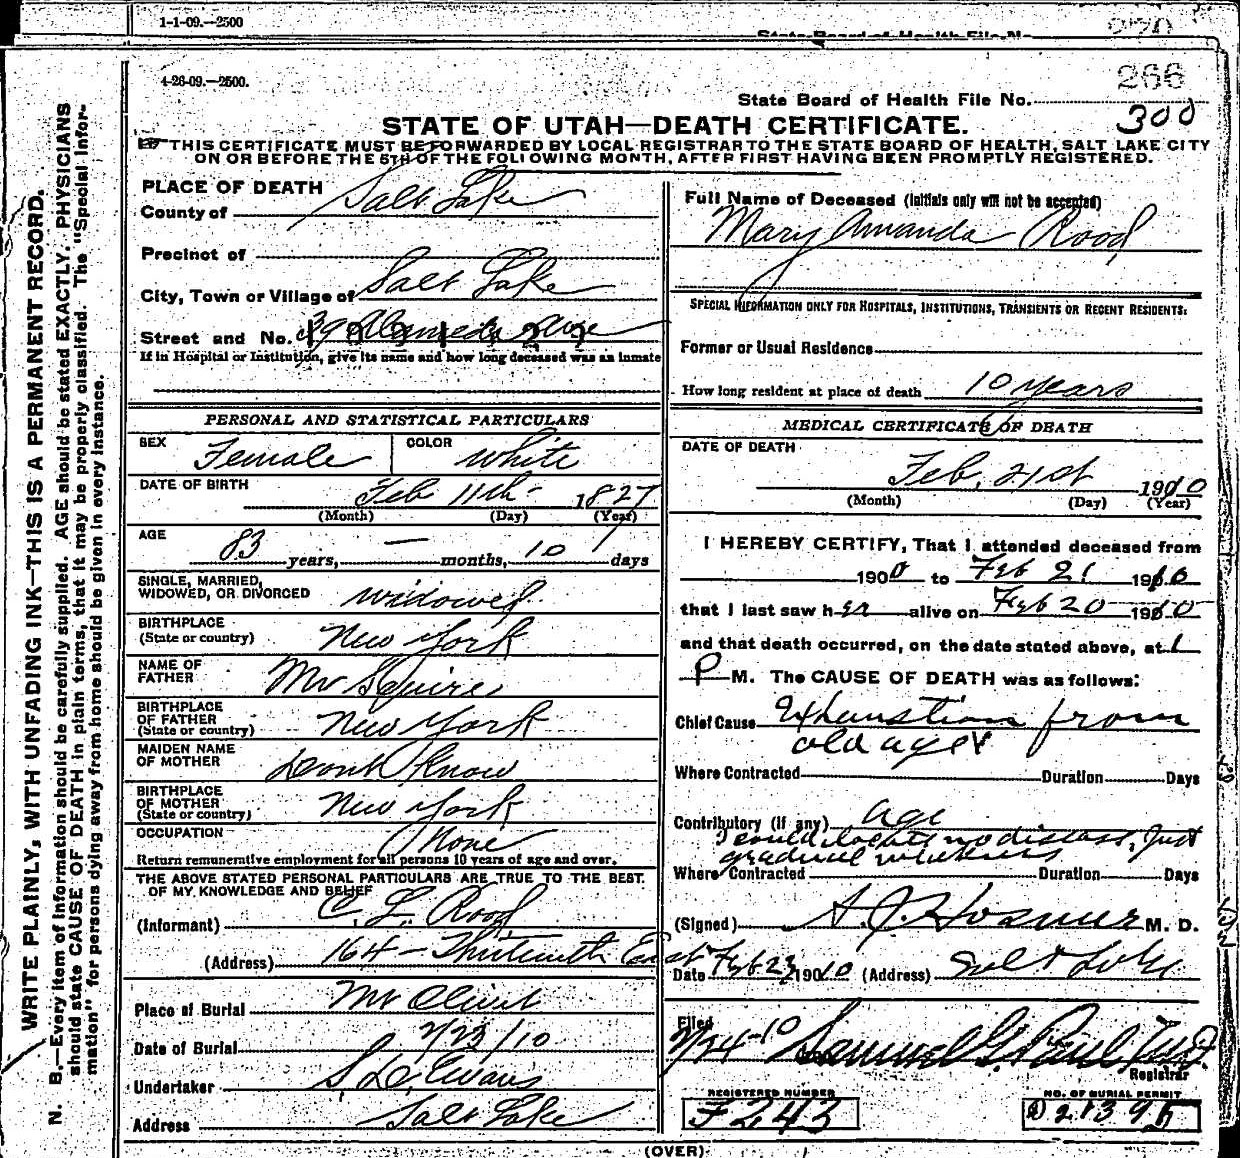 1-1-09.—2500
270
State Board of Health File No.
4-26-09.—2500.
266
State Board of Health File No.
300
STATE OF UTAH—DEATH CERTIFICATE.
THIS CERTIFICATE MUST BE FORWARDED BY LOCAL REGISTRAR TO THE STATE BOARD OF HEALTH, SALT LAKE CITY
ON OR BEFORE THE 5TH OF THE FOLLOWING MONTH, AFTER FIRST HAVING BEEN PROMPTLY REGISTERED.
WRITE PLAINLY, WITH UNFADING INK—THIS IS A PERMANENT RECORD.
N. B.—Every item of information should be carefully supplied. AGE should be stated EXACTLY. PHYSICIANS
should state CAUSE OF DEATH in plain terms, that it may be properly classified. The "Special Infor-
mation" for persons dying away from home should be given in every instance.
PLACE OF DEATH
County of Salt Lake
Precinct of
City, Town or Village of Salt Lake
Street and No. 39 Alameda Ave
If in Hospital or Institution, give its name and how long deceased was an inmate
PERSONAL AND STATISTICAL PARTICULARS
SEX Female COLOR White
DATE OF BIRTH Feb 11th 1827
(Month) (Day) (Year)
AGE 83 years, — months, 10 days
SINGLE, MARRIED,
WIDOWED, OR DIVORCED widowed
BIRTHPLACE
(State or country) New York
NAME OF
FATHER Mr Squires
BIRTHPLACE
OF FATHER
(State or country) New York
MAIDEN NAME
OF MOTHER Dont Know
BIRTHPLACE
OF MOTHER
(State or country) New York
OCCUPATION None
Return remunerative employment for all persons 10 years of age and over.
THE ABOVE STATED PERSONAL PARTICULARS ARE TRUE TO THE BEST
OF MY KNOWLEDGE AND BELIEF
(Informant) C. L. Rood
(Address) 164 - Thirteenth East
Place of Burial Mt Olivet
Date of Burial 2/23/10
Undertaker S. D. Evans
Address Salt Lake
Full Name of Deceased (Initials only will not be accepted)
Mary Amanda Rood
SPECIAL INFORMATION ONLY FOR HOSPITALS, INSTITUTIONS, TRANSIENTS OR RECENT RESIDENTS:
Former or Usual Residence
How long resident at place of death 10 years
MEDICAL CERTIFICATE OF DEATH
DATE OF DEATH
Feb. 21st 1910
(Month) (Day) (Year)
I HEREBY CERTIFY, That I attended deceased from
1900 to Feb 21 1910
that I last saw her alive on Feb 20 1910
and that death occurred, on the date stated above, at 1
P M. The CAUSE OF DEATH was as follows:
Chief Cause Exhaustion from
old age
Where Contracted Duration Days
Contributory (if any) age
I could locate no disease, Just
gradual weakness
Where Contracted Duration Days
(Signed) M. D.
Date Feb 23 1910 (Address) Salt Lake
Filed
2/24-10 Samuel G. Paul
Registrar
REGISTERED NUMBER
F243
NO. OF BURIAL PERMIT
21395
(OVER)